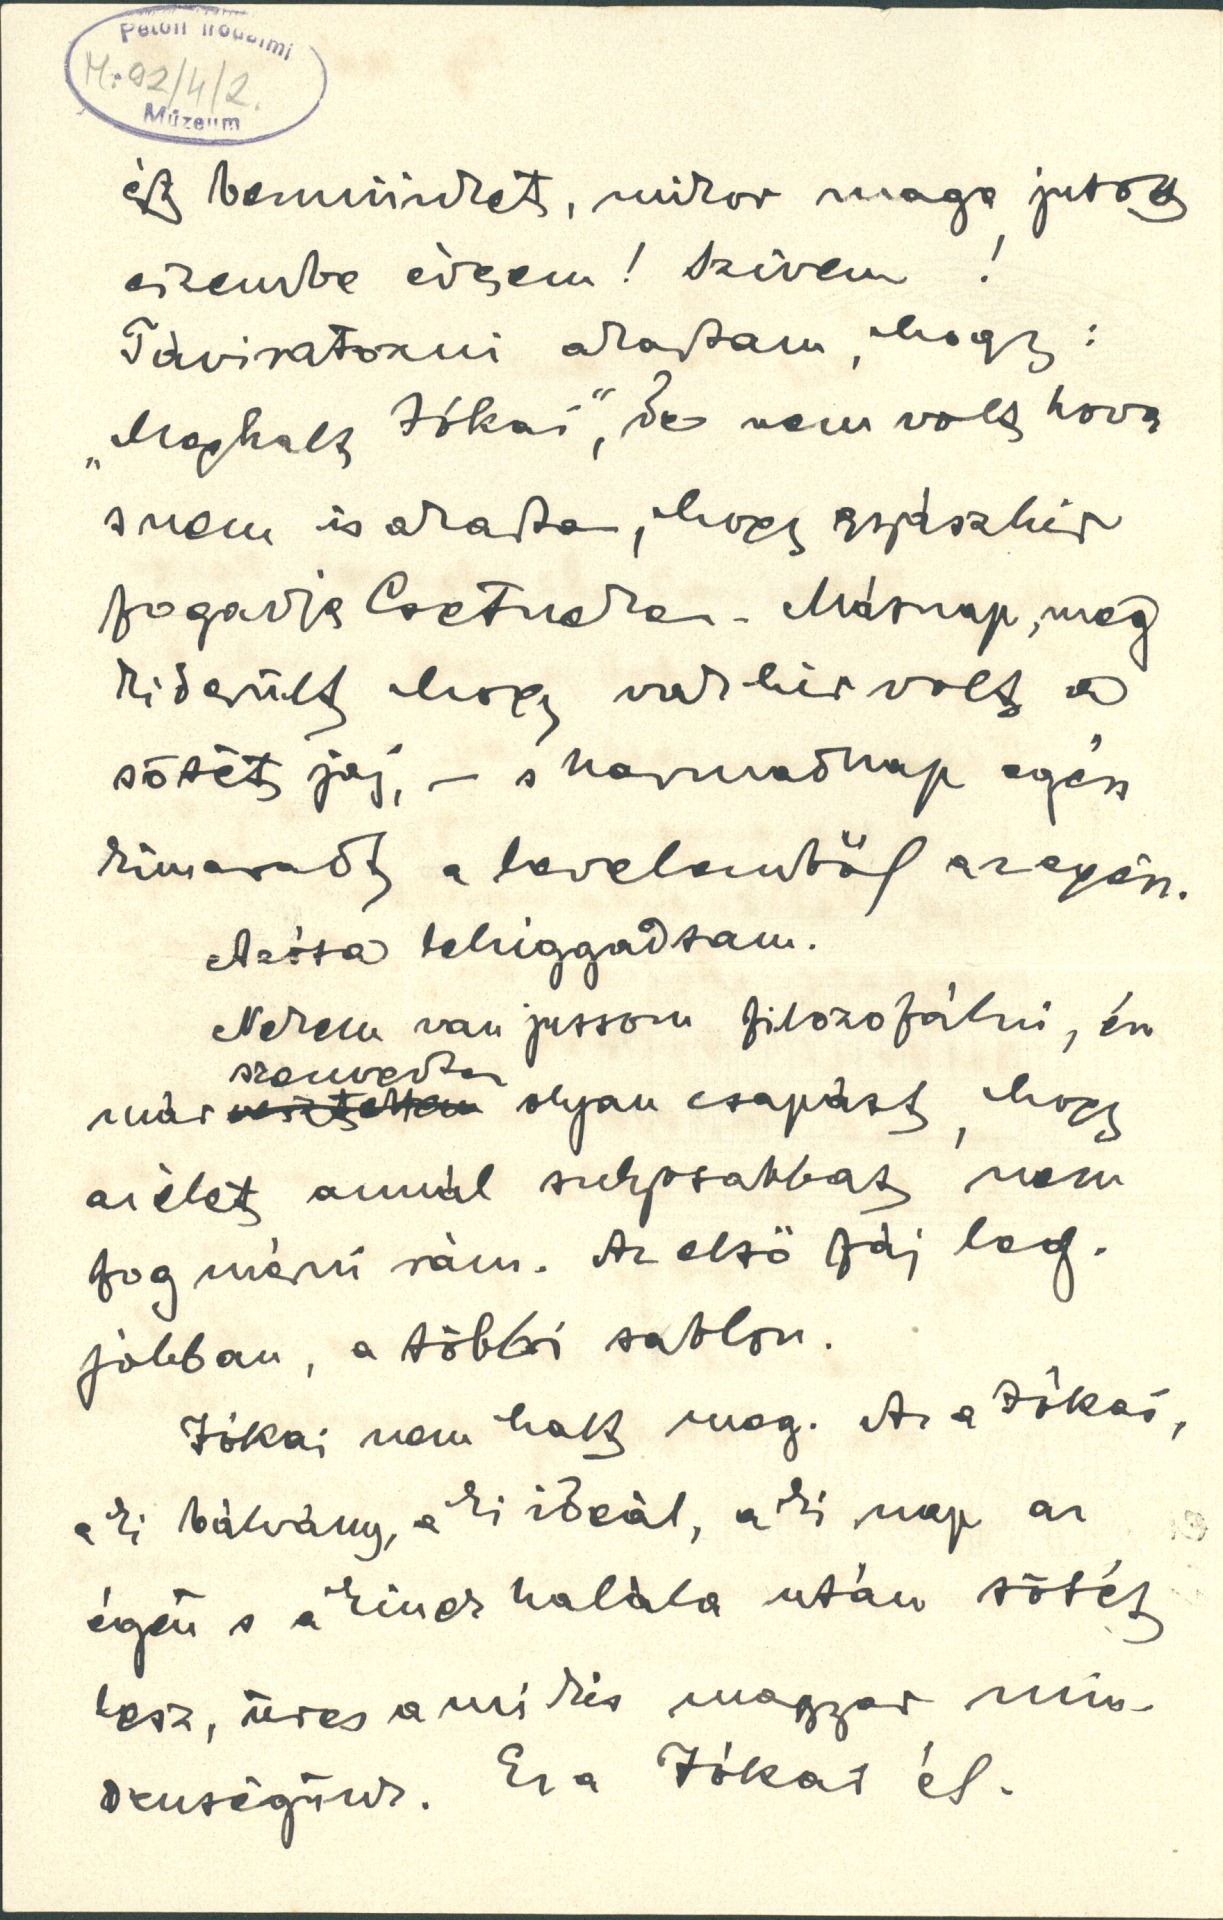 Petőfi Irodalmi
M: 92/4/2.
Múzeum
és bennünket, mikor maga jutott
eszembe édesem! Szívem!
Táviratozni akartam, hogy:
„Meghalt Jókai”, de nem volt hova
s nem is akarta, hogy gyászhír
fogadja Csetneken. Másnap, meg
kiderült hogy vak hír volt a
sötét jaj, – s harmadnap egész
kimaradt a levelemből az egész.
Azóta lehiggadtam.
Nekem van jussom filozofálni, én
szenvedtem
már vesztettem olyan csapást, hogy
az élet annál sulyosabbat nem
fog mérni rám. Az első fáj leg-
jobban, a többi sablon.
Jókai nem halt meg. Az a Jókai,
a ki bálvány, a ki ideál, a ki nap az
égen s a kinek halála után sötét
lesz, üres a mi kis magyar min-
denségünk. Ez a Jókai él.